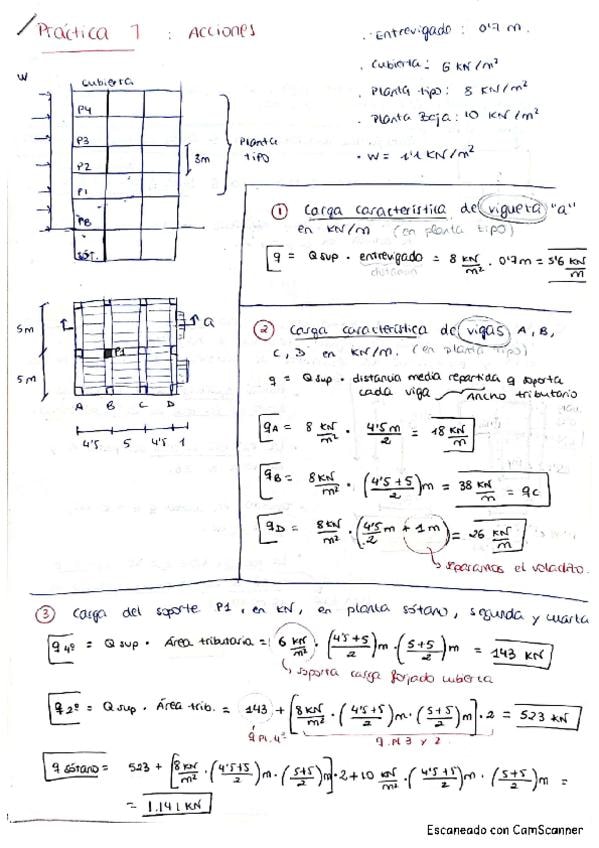 Práctica 1 : Acciones
. Entrevigado : 0'7 m.
. Cubierta : 6 KN/m²
. Planta tipo : 8 KN/m²
. Planta Baja : 10 KN/m²
. W = 1'1 KN/m²
W
cubierta
P4
P3
P2
P1
PB
SÓT.
3m
Planta
tipo
① Carga característica de vigueta "a"
en KN/m (en planta tipo)
q = Qsup · entrevigado = 8 KN/m² · 0'7m = 5'6 KN/m
distancia
5m
5m
P1
a
A B C D
4'5 5 4'5 1
② Carga característica de vigas A, B,
C, D en KN/m. (en planta tipo)
q = Qsup · distancia media repartida q soporta
cada viga Ancho tributario
qA = 8 KN/m² · 4'5m/2 = 18 KN/m
qB = 8 KN/m² · (4'5+5/2)m = 38 KN/m = qC
qD = 8 KN/m² · (4'5/2 m + 1m) = 26 KN/m
separamos el voladito.
③ Carga del soporte P1, en KN, en planta sótano, segunda y cuarta
q4º = Qsup · Área tributaria = 6 KN/m² · (4'5+5/2)m · (5+5/2)m = 143 KN
soporta carga forjado cubierta
q2º = Qsup · Área trib. = 143 + [8 KN/m² · (4'5+5/2)m · (5+5/2)m] · 2 = 523 KN
q Pl. 4º q. Pl 3 y 2.
q sótano = 523 + [8 KN/m² · (4'5+5/2)m · (5+5/2)m] · 2 + 10 KN/m² · (4'5+5/2)m · (5+5/2)m =
= 1.141 KN
Escaneado con CamScanner